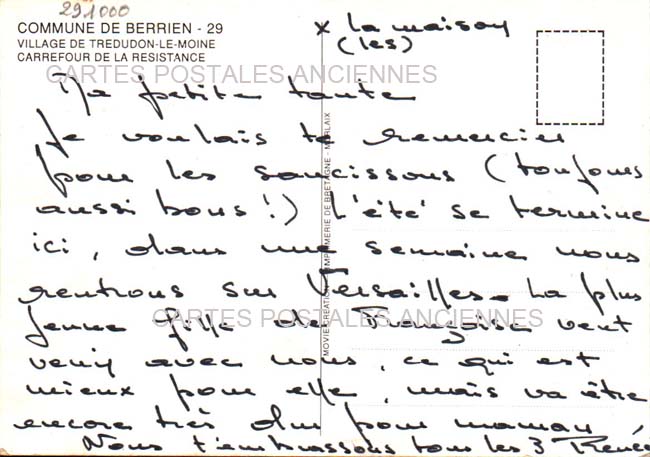 291000
COMMUNE DE BERRIEN - 29
VILLAGE DE TREDUDON-LE-MOINE
CARREFOUR DE LA RESISTANCE
x La maison
(les)
CARTES POSTALES ANCIENNES
Ma petite tante
Je voulais te remercier
pour les saucissons (toujours
aussi bons !) L'été se termine
ici, dans une semaine nous
rentrons sur Versailles. La plus
jeune fille de Françoise veut
CARTES POSTALES ANCIENNES
venir avec nous, ce qui est
mieux pour elle, mais va être
encore très dur pour maman
Nous t'embrassons tous les 3 Renée
IMPRIMERIE DE BRETAGNE - MORLAIX